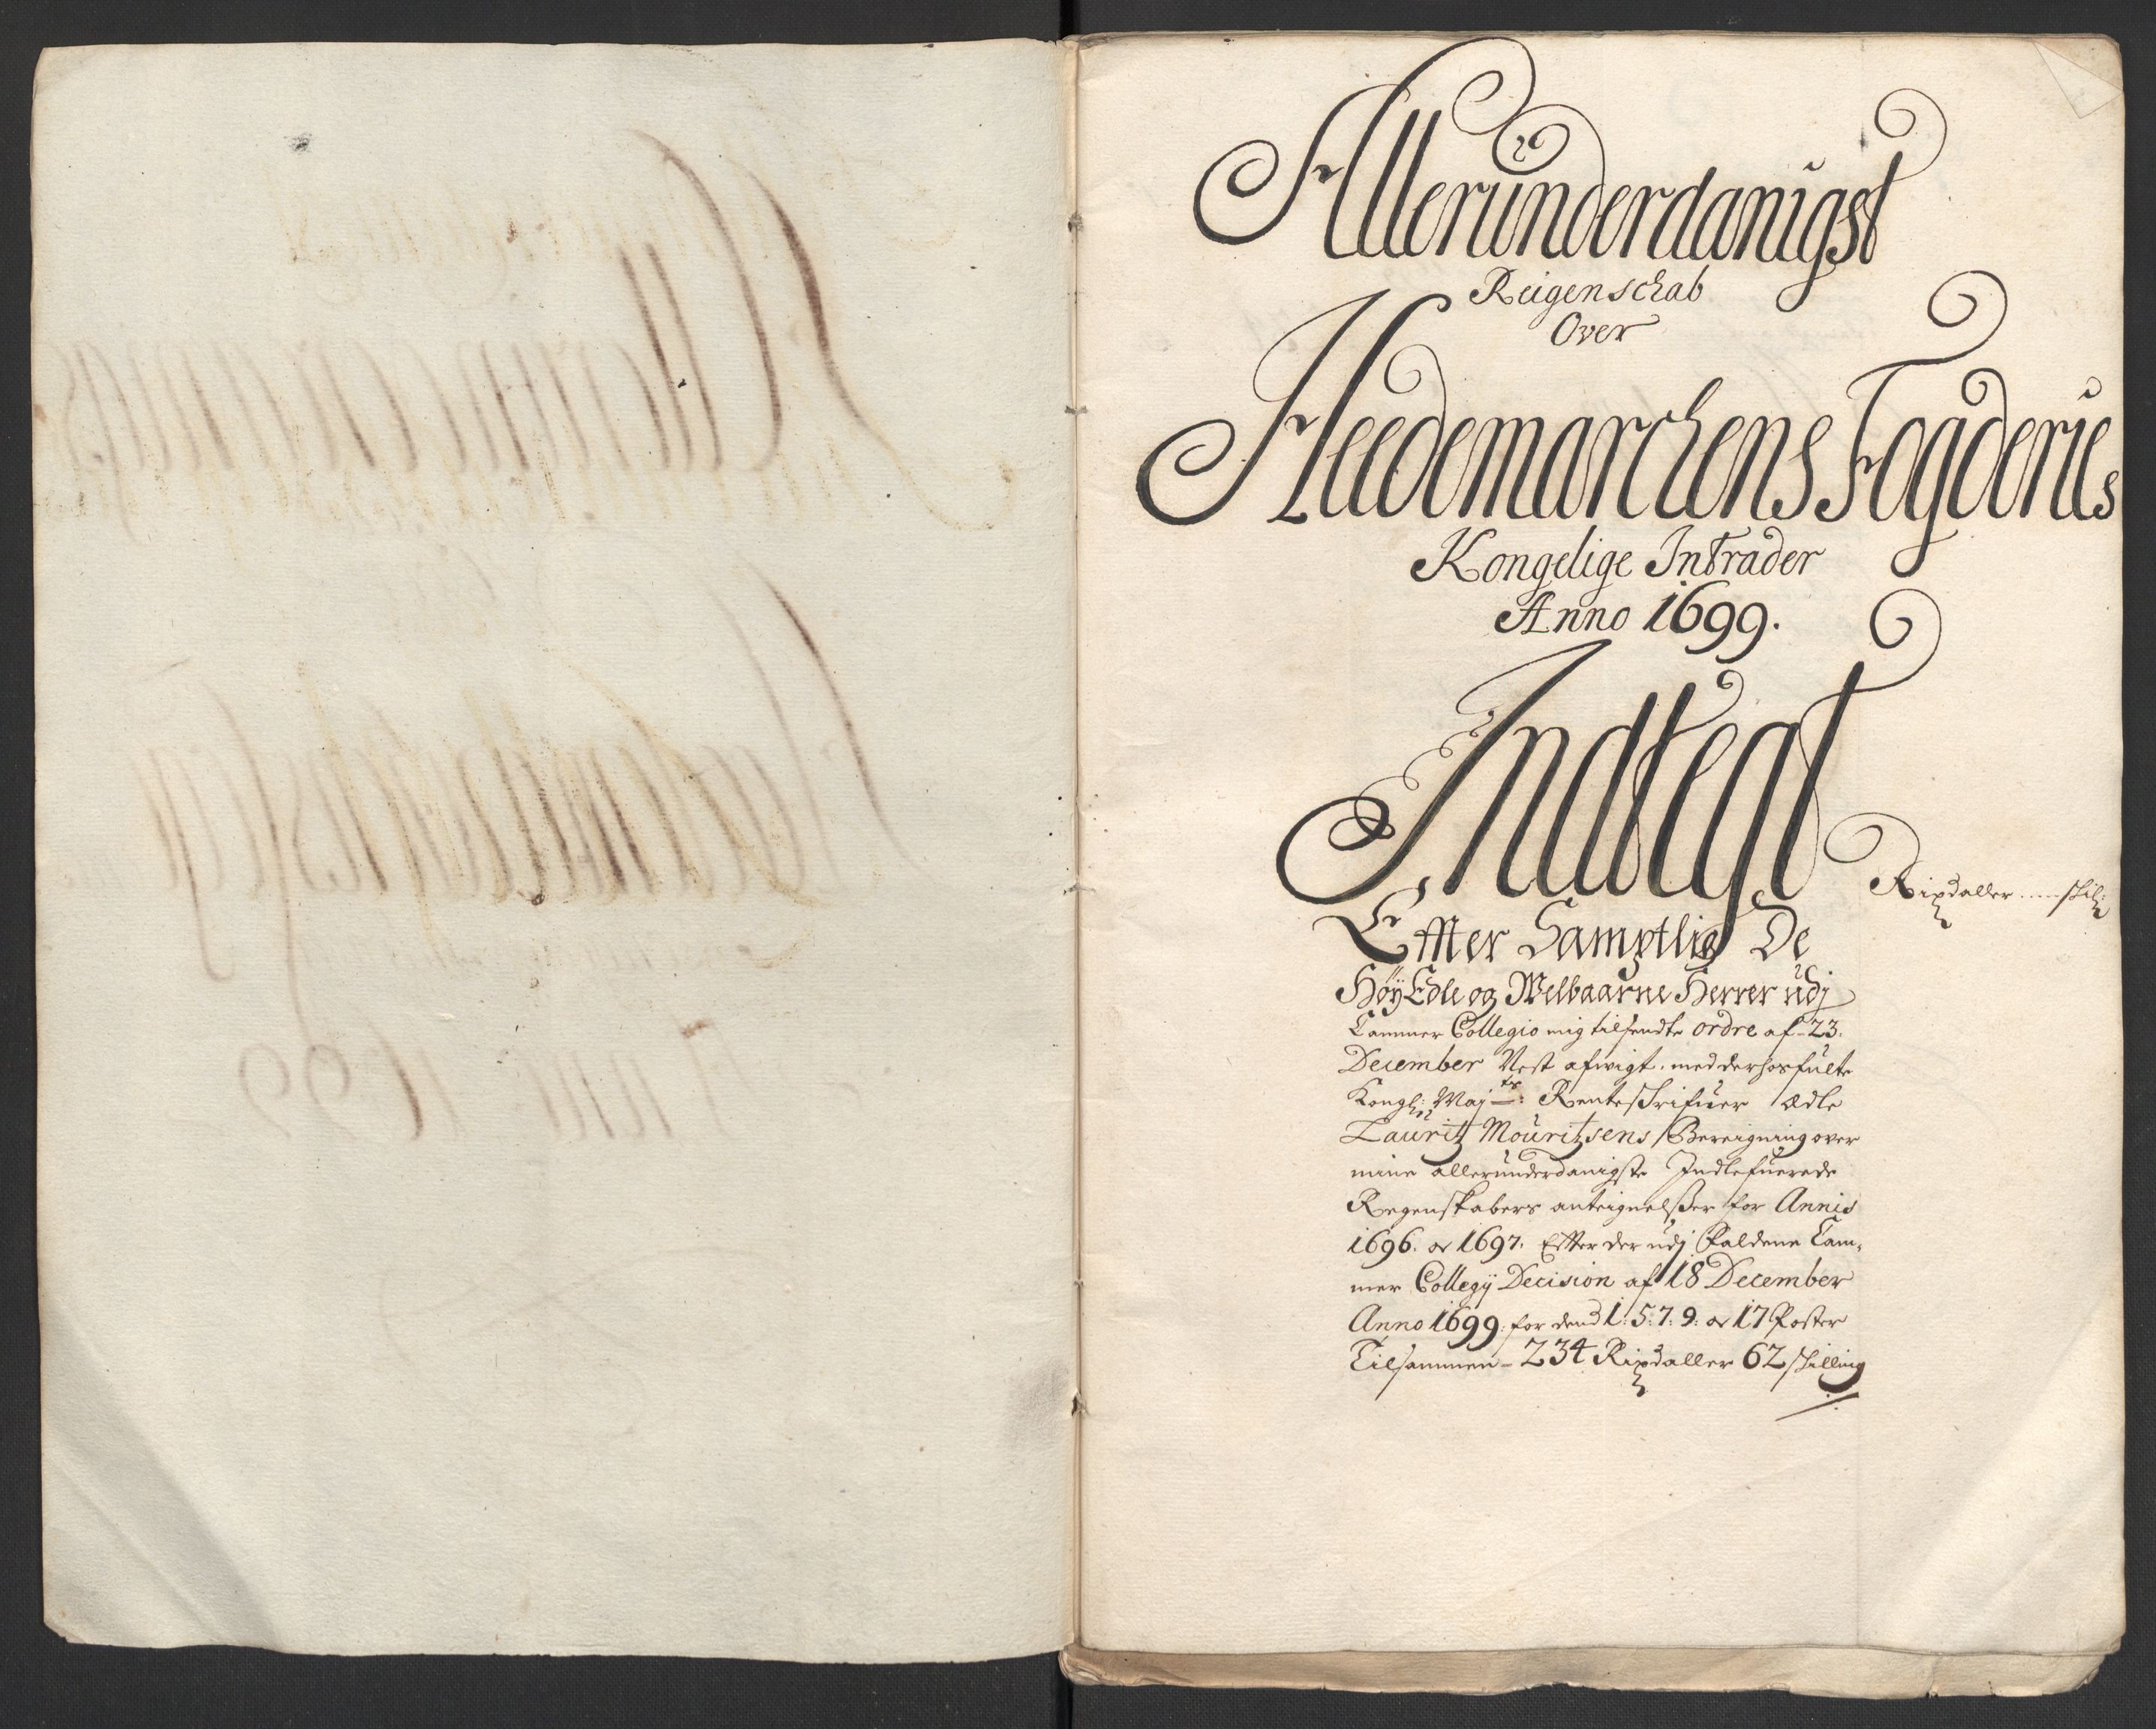 Alleründerdanigst
Reigenschab
Over
Heedemarchens Fogderies
Kongelige Intrader
Anno 1699.
Indtegt
Rixdaller .... skil:
Effter Samptlig De
Høÿ Edle og Welbaarne Herrer üdj
Cammer Collegio mig tilsendte ordre af 23.
December Nest afwigt. med derhos fülte
Kongl: Maj:ts: Renteskrifuer Ædle
Lauritz Mouritzsens Bereigning over
mine alleründerdanigste Indlefuerede
Regenskabers anteignelsser for Annis
1696. og 1697. Effter der udj faldene Cam-
mer Collegij Decision af 18 December
Anno 1699. for dend 1. 5. 7. 9. og 17 Poster
Tilsammen - 234 Rixdaller 62 skilling